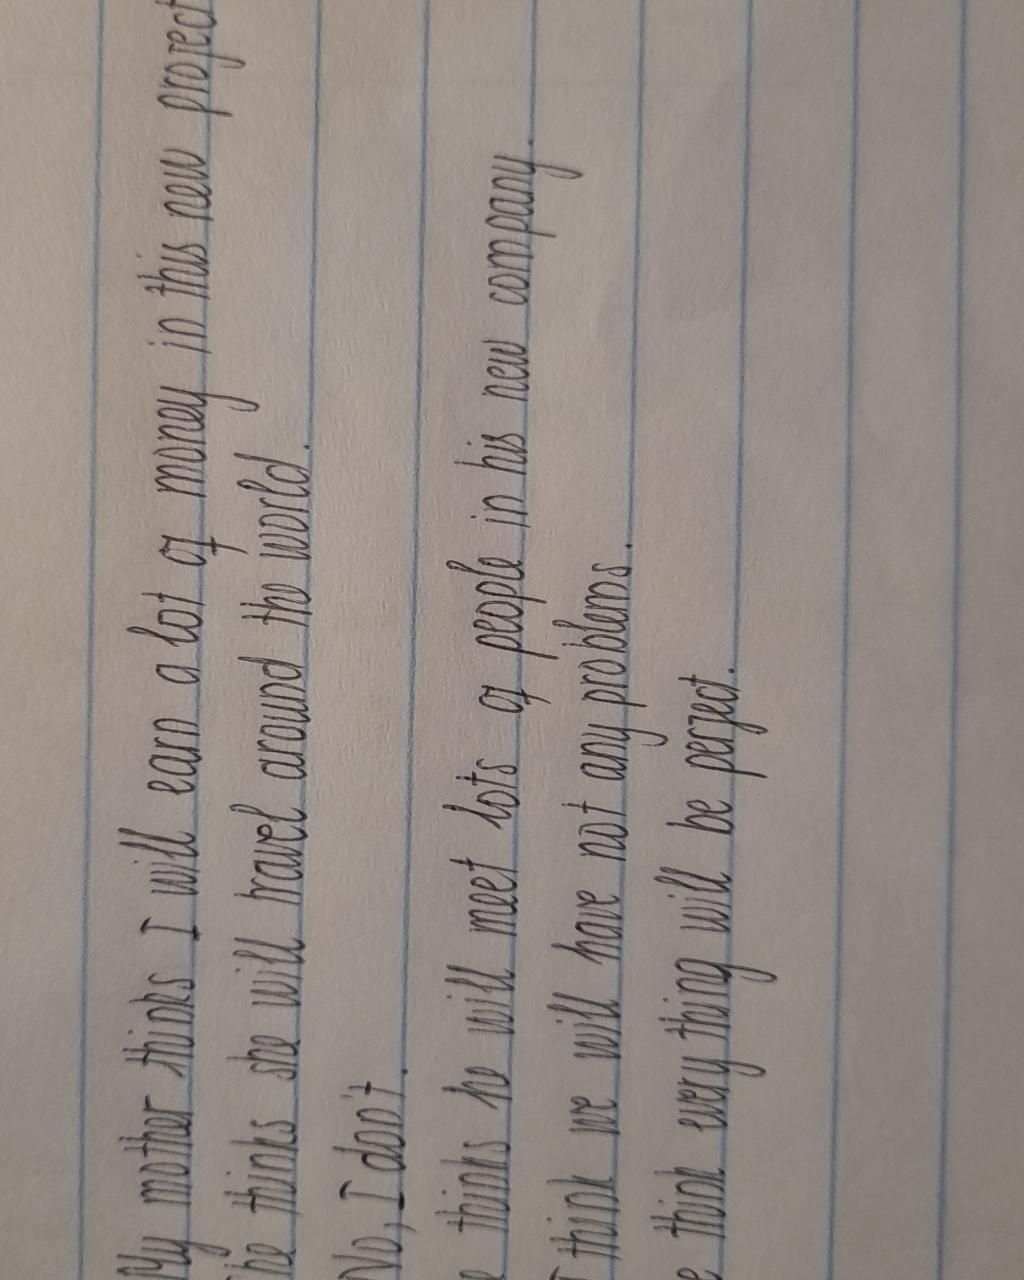 My mother thinks I will earn a lot of money in this new project
he thinks she will travel around the world.
No, I don't.
e thinks he will meet lots of people in his new company.
I think we will have not any problems.
e think every thing will be perfect.